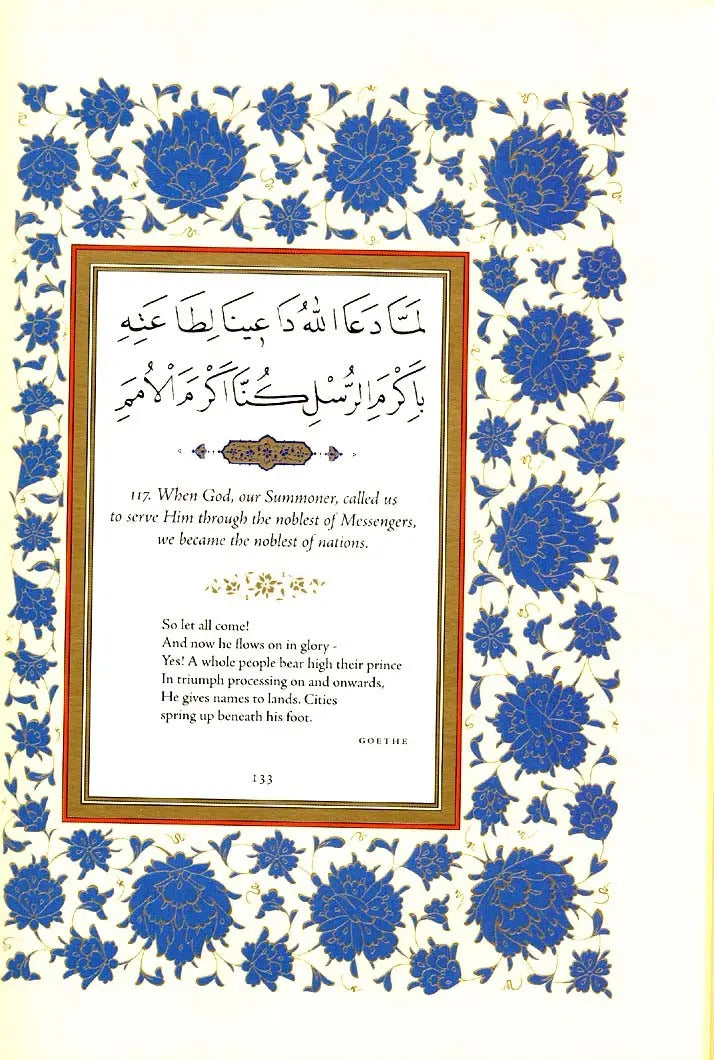 لَمَّا دَعَا اللهُ دَاعِينَا لِطَاعَتِهِ
بِأَكْرَمِ الرُّسْلِ كُنَّا أَكْرَمَ الْأُمَمِ
117. When God, our Summoner, called us
to serve Him through the noblest of Messengers,
we became the noblest of nations.
So let all come!
And now he flows on in glory -
Yes! A whole people bear high their prince
In triumph processing on and onwards,
He gives names to lands. Cities
spring up beneath his foot.
GOETHE
133